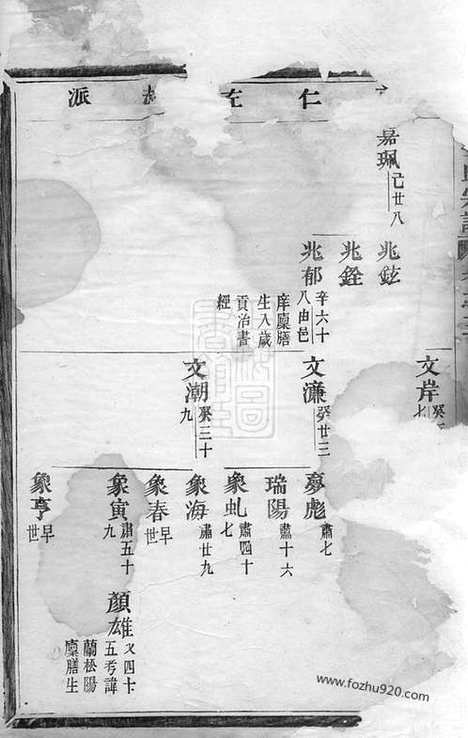 仁 在 派
嘉珮 己廿八
兆鉉
兆銓
兆郁 辛六十
八由邑
庠廩膳
生入歲
貢治書
經
文岸 癸
七
文濂 癸廿三
文潮 癸三十
九
夢彪 肅七
瑞陽 肅十六
象虬 肅四十
七
象海 肅廿九
象春 早
世
象寅 肅五十
九
象亨 早
世
顏雄 又四十
五考諱
蘭松陽
廩膳生
www.fozhu920.com